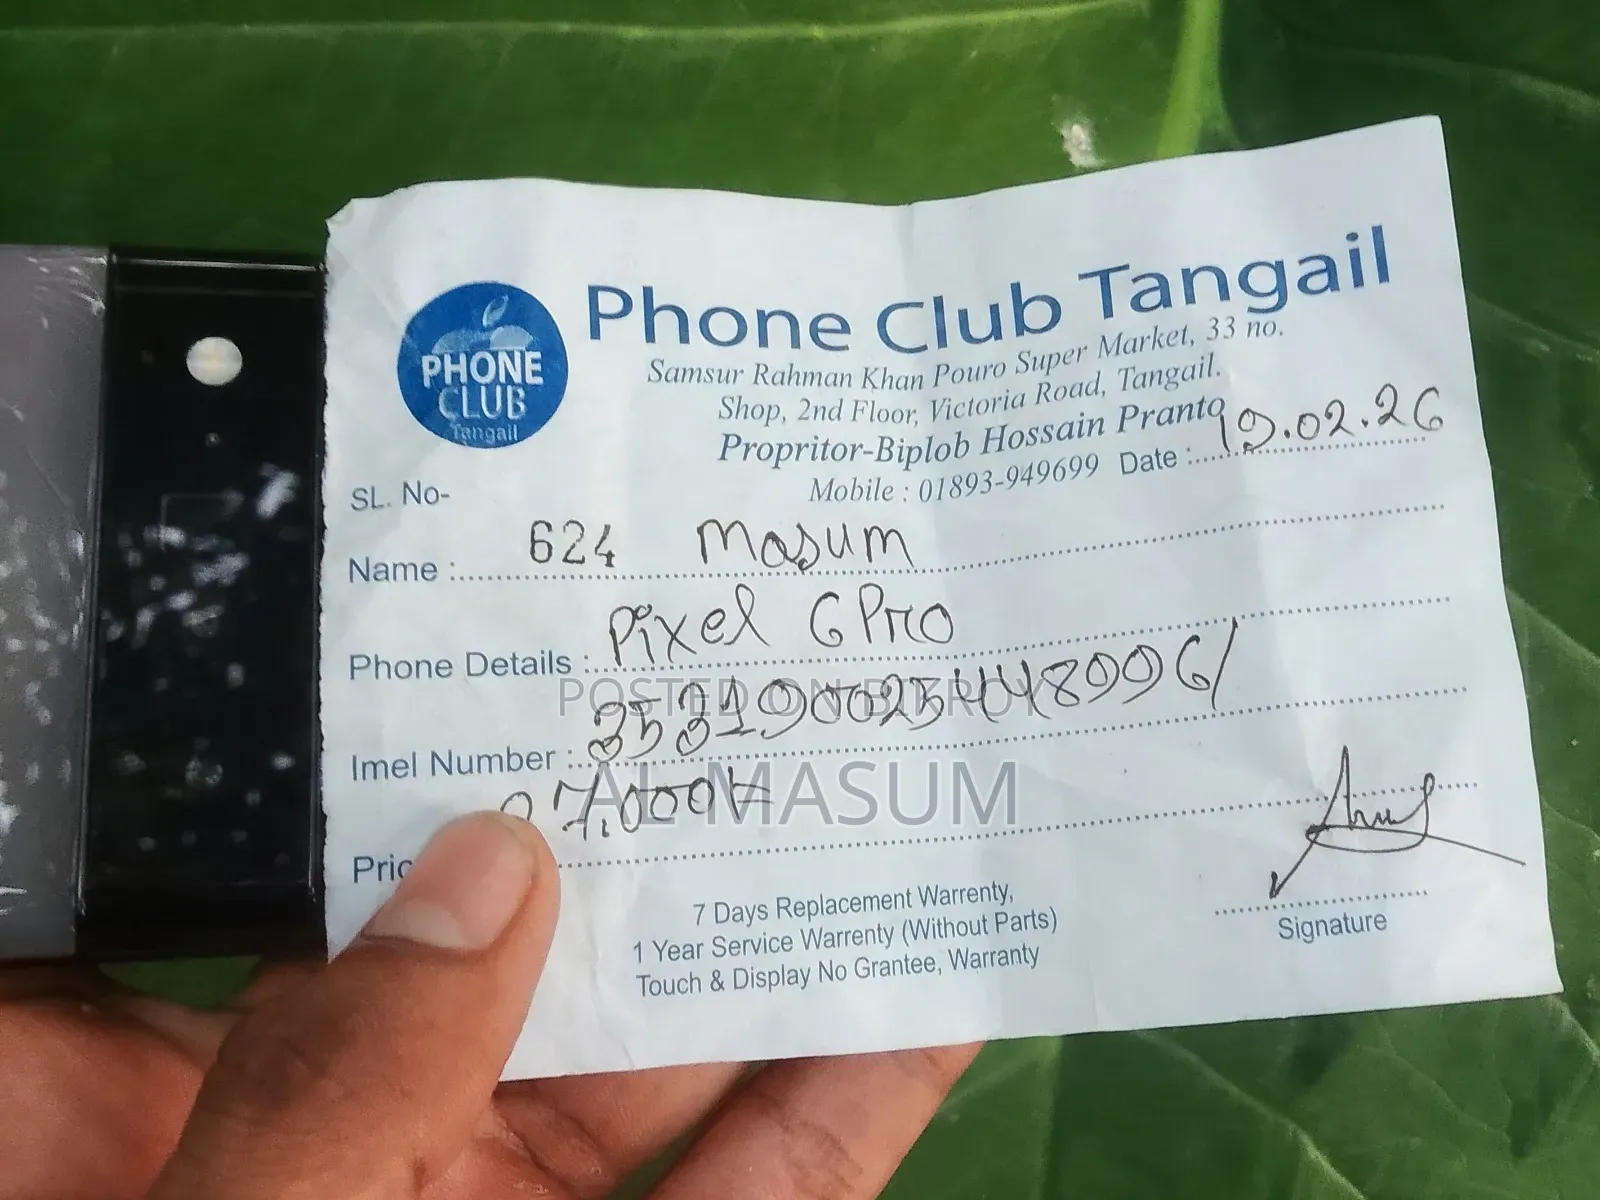 Phone Club Tangail
PHONE
CLUB
Tangail
Samsur Rahman Khan Pouro Super Market, 33 no.
Shop, 2nd Floor, Victoria Road, Tangail.
Propritor-Biplob Hossain Pranto
Mobile : 01893-949699 Date : 19.02.26
SL. No-
Name : 624 Masum
Phone Details : Pixel 6 Pro
POSTED ON BIKROY
Imel Number : 353190025448996/
AL MASUM
27,000/=
7 Days Replacement Warrenty,
1 Year Service Warrenty (Without Parts)
Touch & Display No Grantee, Warranty
Signature